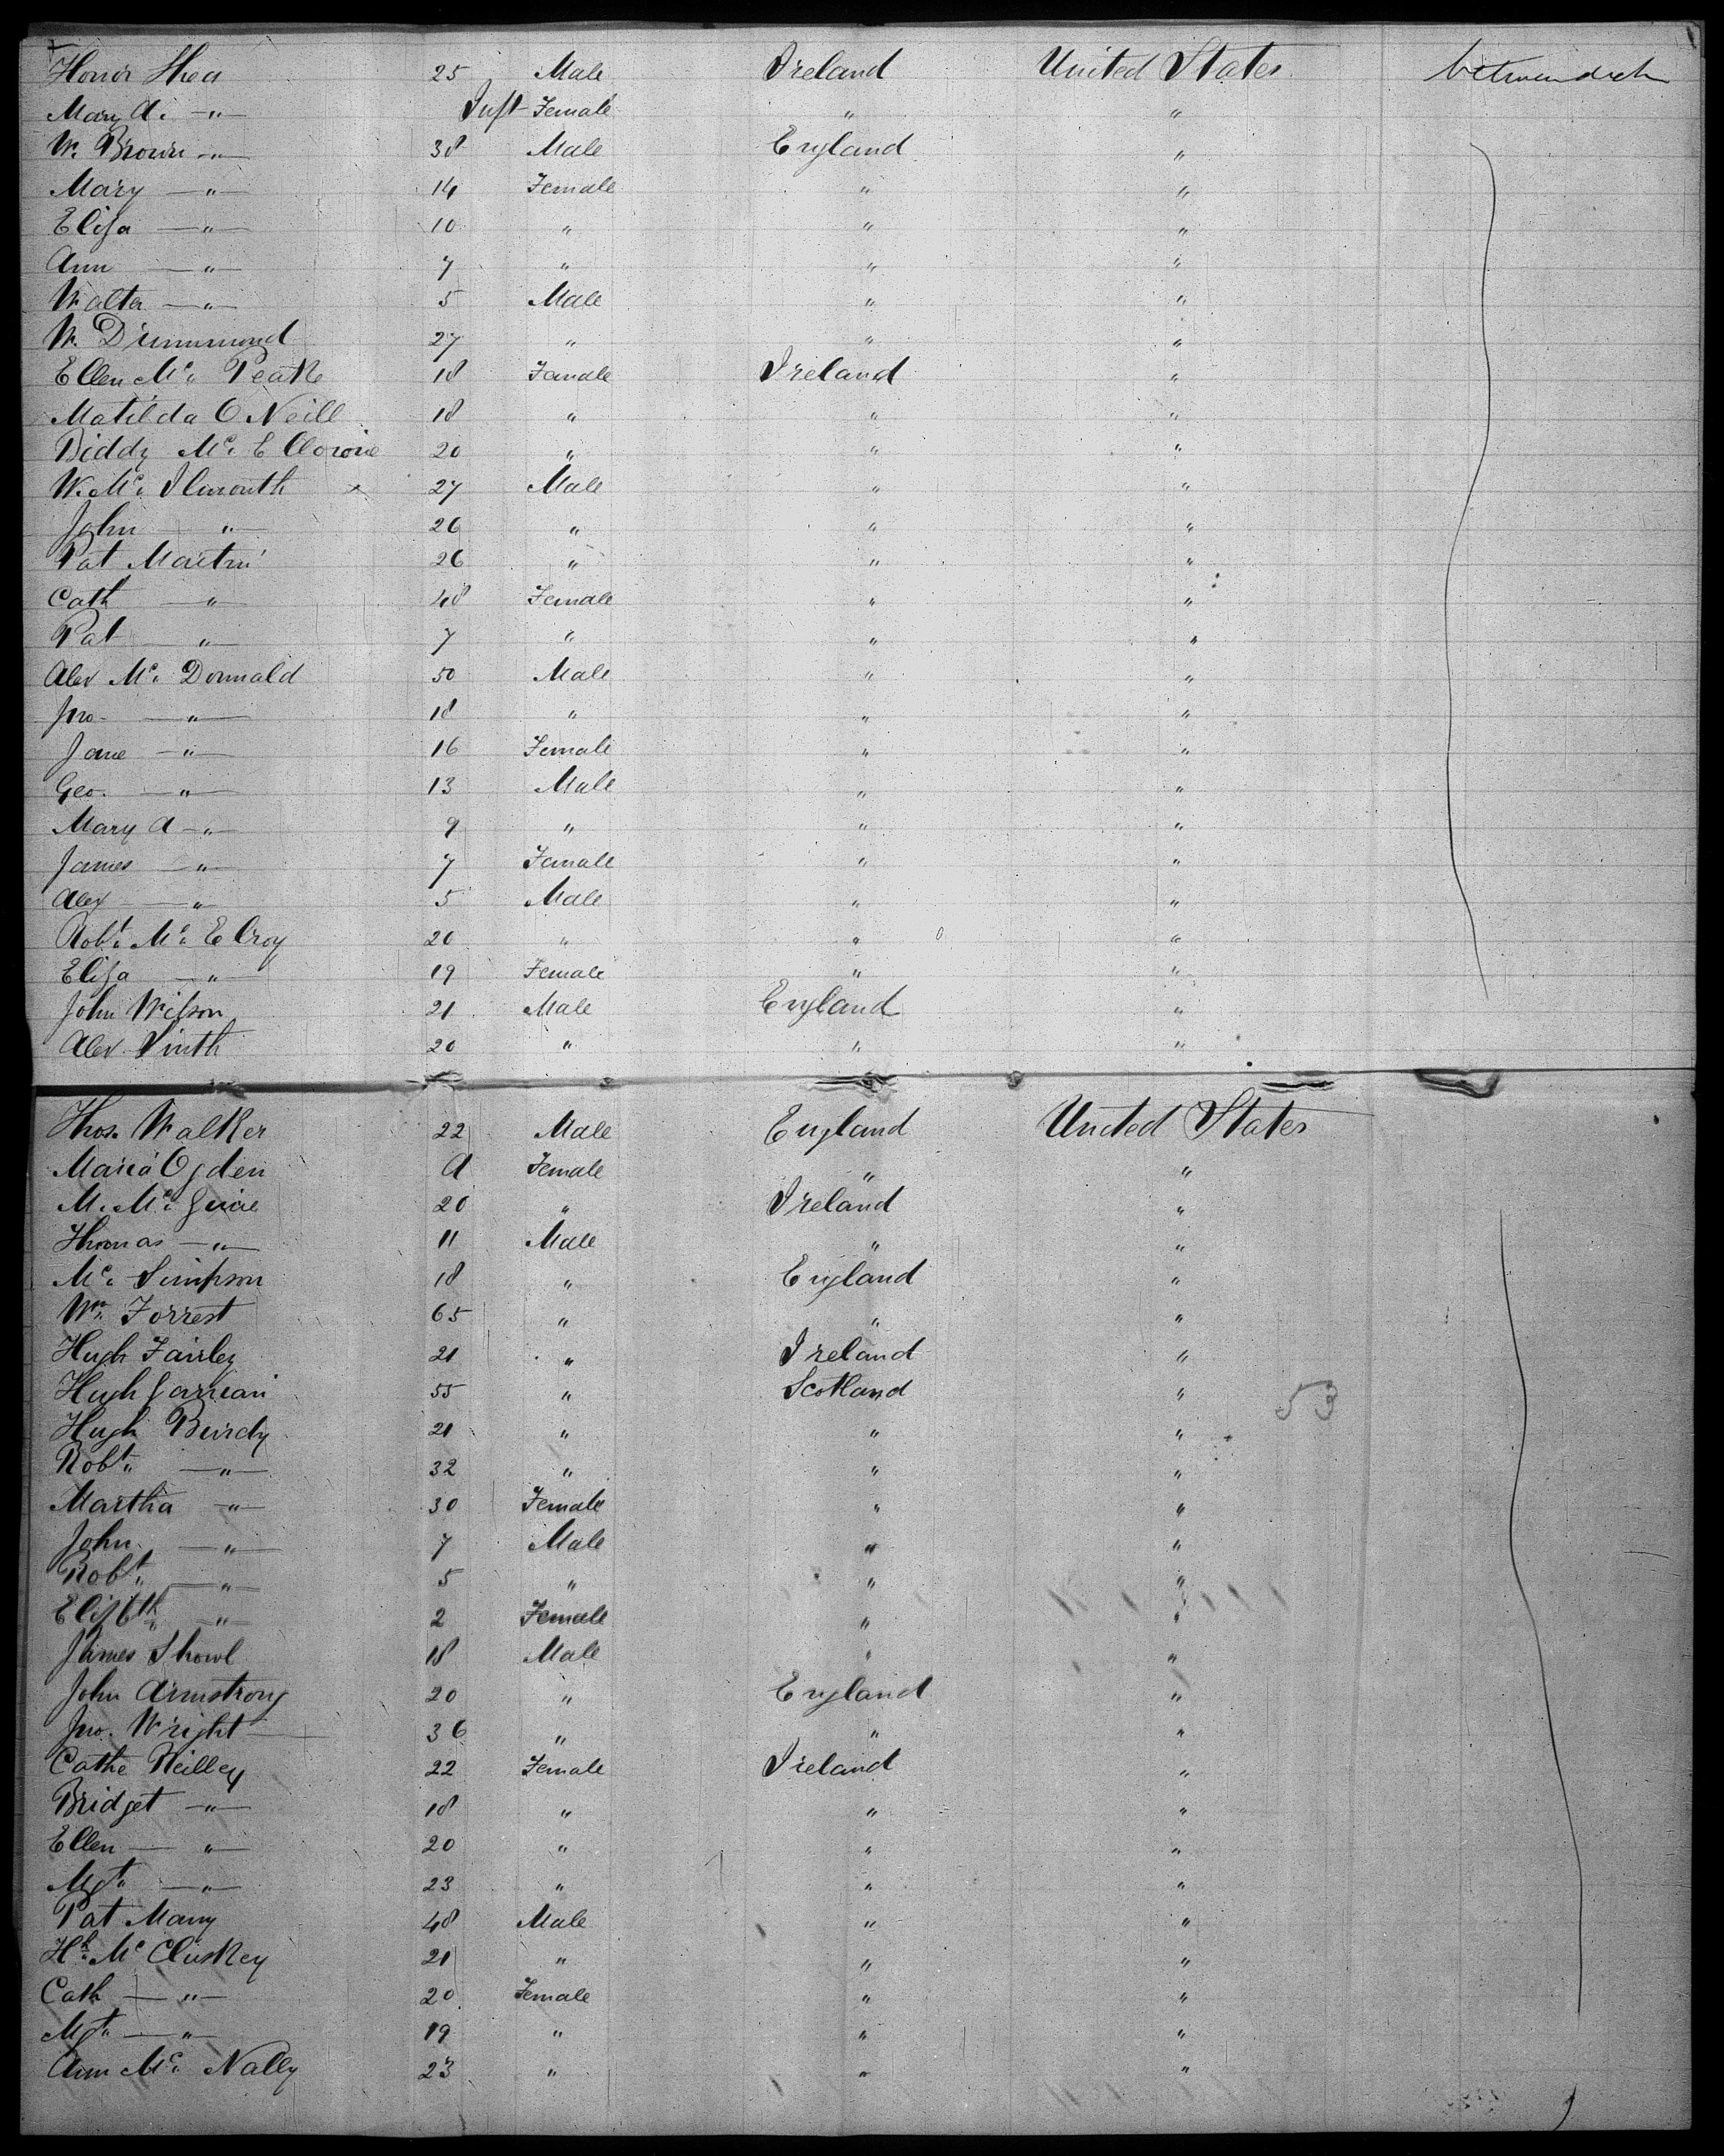 Honor Shea 25 Male Ireland United States
Mary A. " Inft Female " "
W. Brown " 38 Male England "
Mary " 14 Female " "
Eliza " 10 " " "
Ann " 7 " " "
Walter " 5 Male " "
W. Drummond 27 " " "
Ellen Mc. Peake 18 Female Ireland "
Matilda O Neill 18 " " "
Biddy Mc. 20 " " "
W. Mc. Ilmouth x 27 Male " "
John " 26 " " "
Pat Martin 26 " " "
Cath " 48 Female " "
Pat " 7 " " "
Alex Mc. Donnald 50 Male " "
Jno. " 18 " " "
Jane " 16 Female " "
Geo. " 13 Male " "
Mary A " 9 " " "
James " 7 Female " "
Alex " 5 Male " "
Robt. Mc. Elroy 20 " " "
Eliza " 19 Female " "
John Wilson 21 Male England "
Alex. Smith 20 " " "
Thos. Walker 22 Male England United States
Maria Ogden A Female " "
M. Mc. Guire 20 " Ireland "
Thomas " 11 Male " "
Mc. Simpson 18 " England "
Wm. Forrest 65 " " "
Hugh Fairley 21 " Ireland "
Hugh 55 " Scotland " 53
Hugh Burdy 21 " " "
Robt. " 32 " " "
Martha " 30 Female " "
John " 7 Male " "
Robt. " 5 " " "
Elizbth " 2 Female " "
James Showl 18 Male " "
John Armstrong 20 " England "
Jno. Wright 36 " " "
Cathe Reilley 22 Female Ireland "
Bridget " 18 " " "
Ellen " 20 " " "
Mgt. " 23 " " "
Pat Many 48 Male " "
Hh. Mc Cluskey 21 " " "
Cath " 20 Female " "
Mgt. " 19 " " "
Ann Mc. Nally 23 " " "